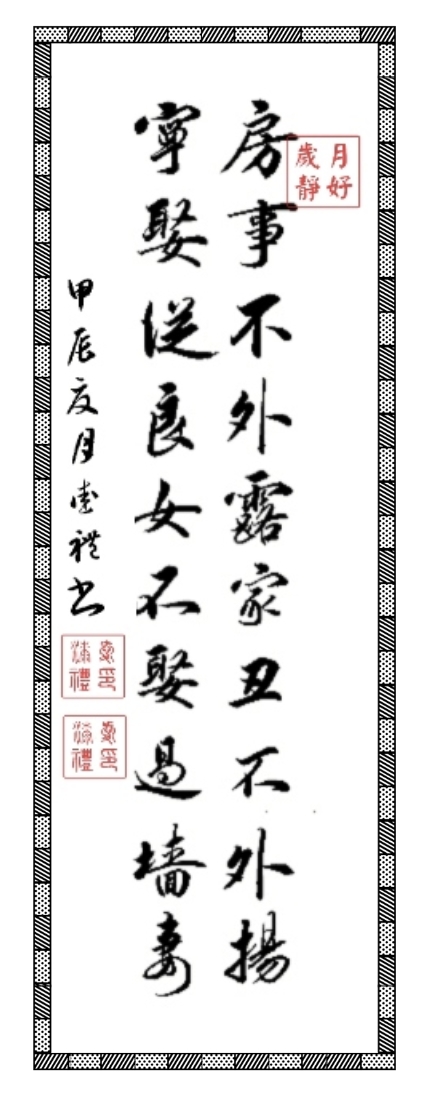 房事不外露家丑不外揚
寧娶從良女不娶過墻妻
甲辰夏月
禮书
月好
歲靜